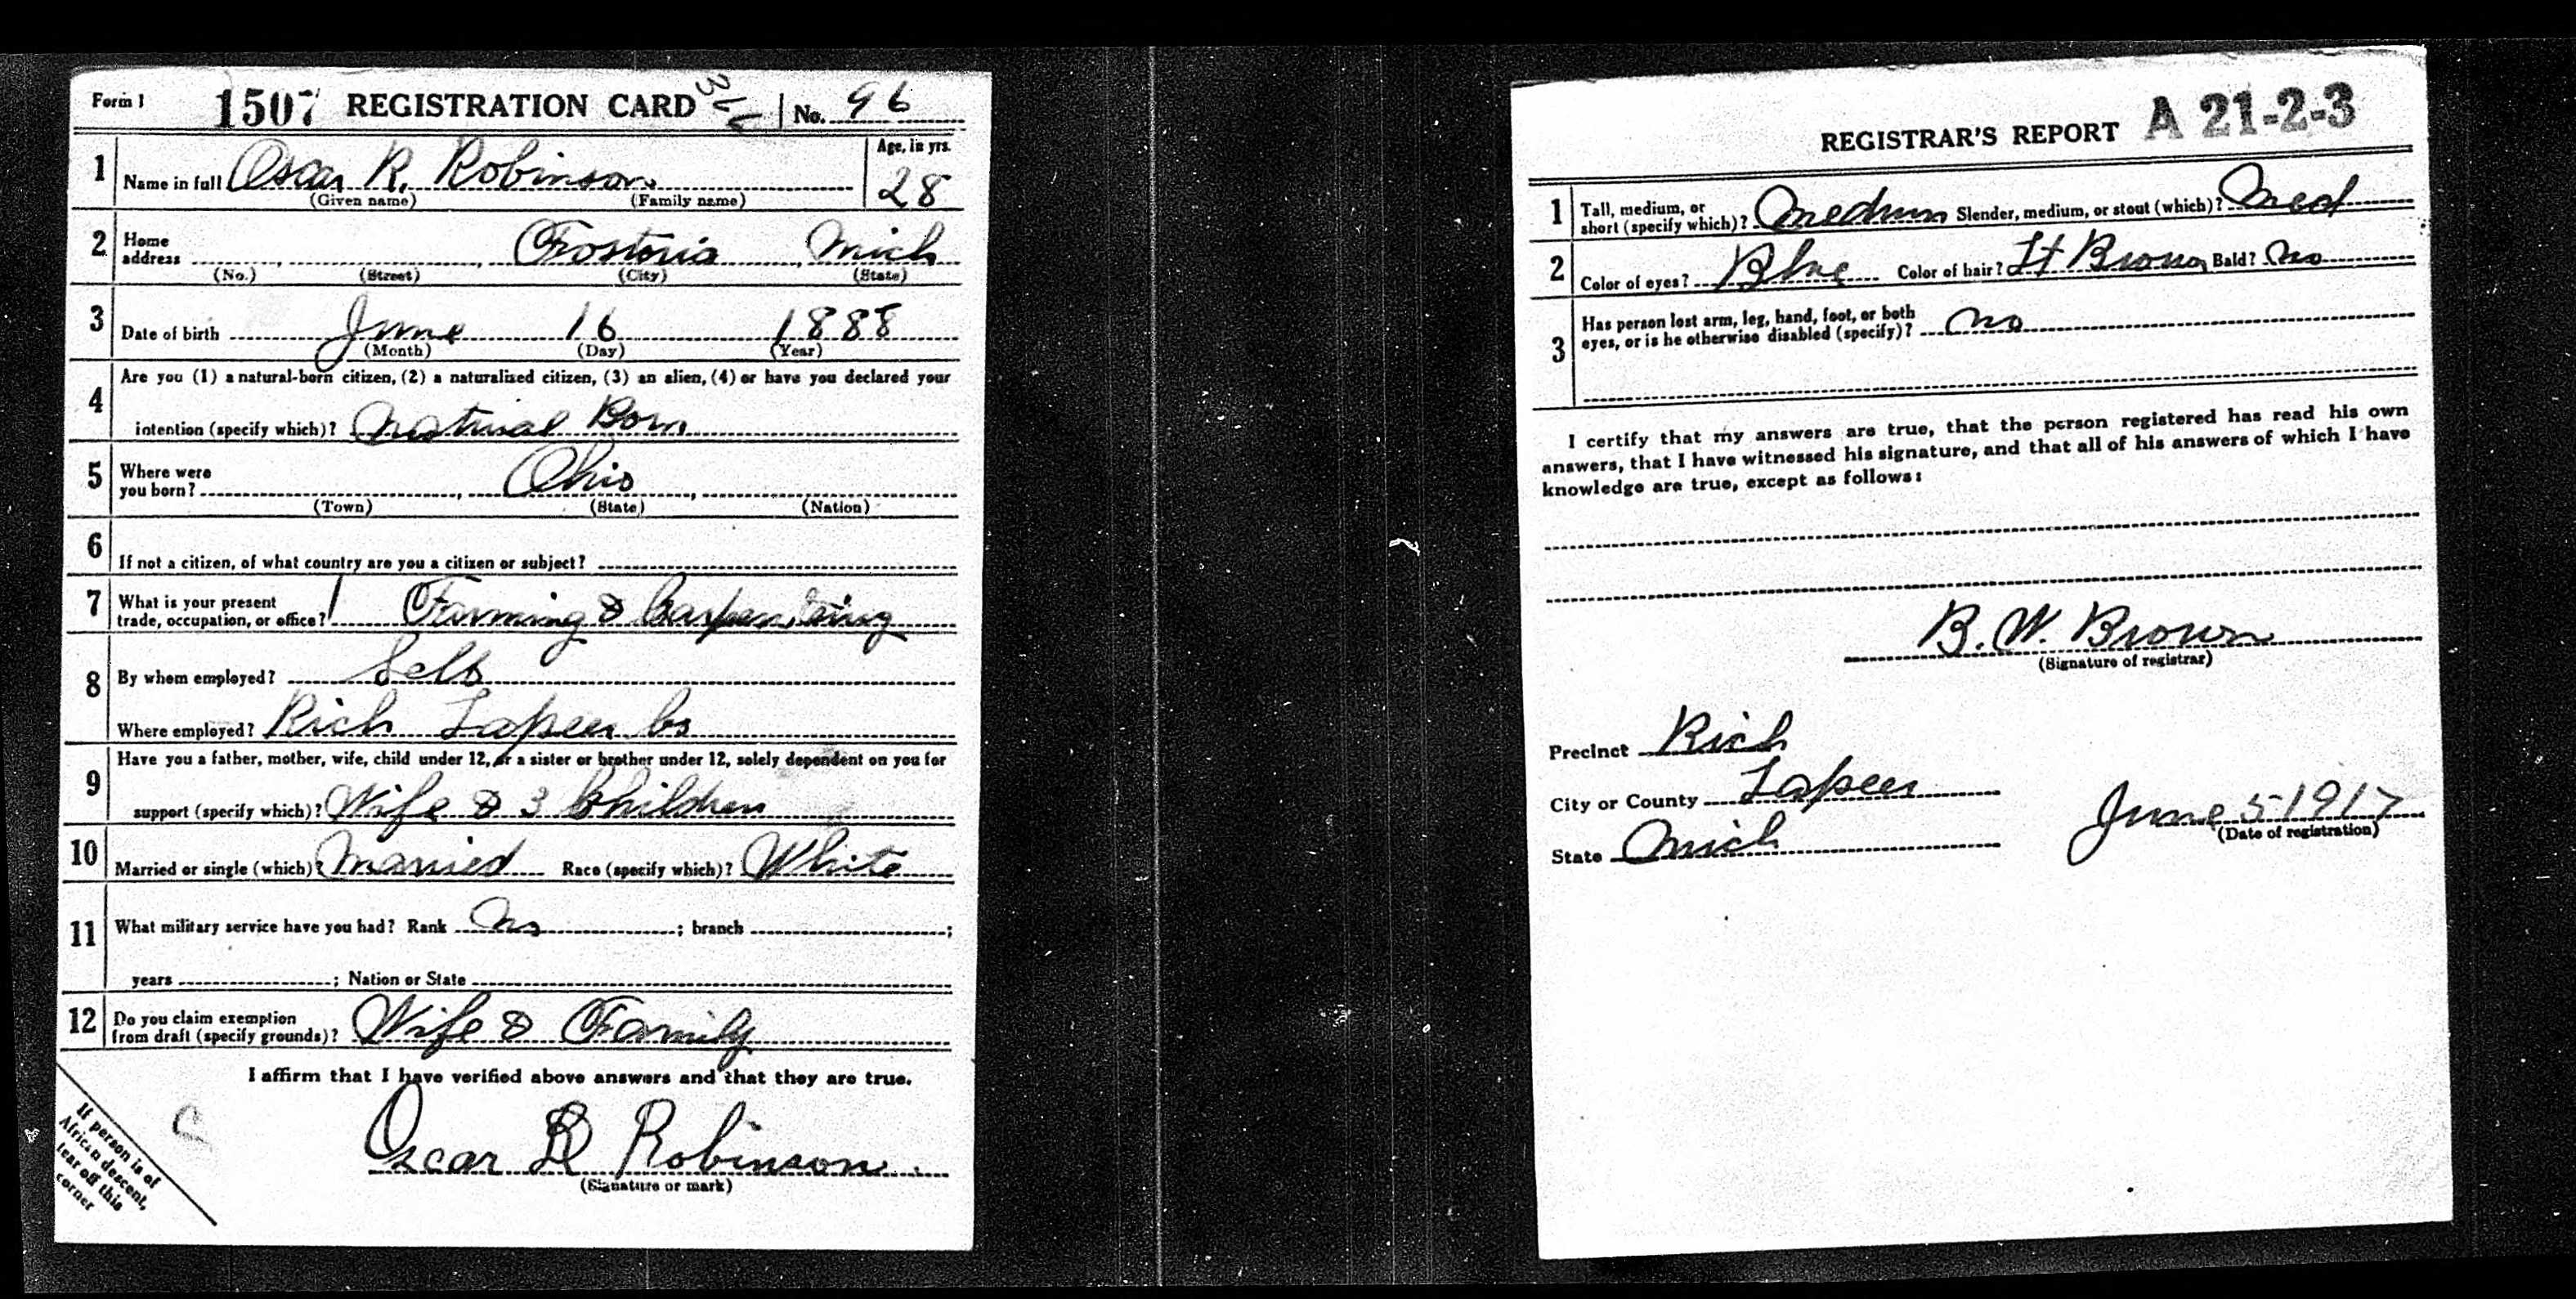 Form 1 1507 REGISTRATION CARD No. 96
1 Name in full Oscar R. Robinson Age, in yrs.
(Given name) (Family name) 28
2 Home address Fostoria Mich
(No.) (Street) (City) (State)
3 Date of birth June 16 1888
(Month) (Day) (Year)
4 Are you (1) a natural-born citizen, (2) a naturalized citizen, (3) an alien, (4) or have you declared your
intention (specify which)? Natural Born
5 Where were you born? Ohio
(Town) (State) (Nation)
6 If not a citizen, of what country are you a citizen or subject?
7 What is your present
trade, occupation, or office? Farming & Carpentering
8 By whom employed? Self
Where employed? Rich Lapeer Co
9 Have you a father, mother, wife, child under 12, or a sister or brother under 12, solely dependent on you for
support (specify which)? Wife & 3 Children
10 Married or single (which)? Married Race (specify which)? White
11 What military service have you had? Rank No ; branch ;
years ; Nation or State
12 Do you claim exemption
from draft (specify grounds)? Wife & Family
I affirm that I have verified above answers and that they are true.
Oscar R Robinson
(Signature or mark)
If person is of
African descent,
tear off this
corner
REGISTRAR'S REPORT A 21-2-3
1 Tall, medium, or
short (specify which)? Medium Slender, medium, or stout (which)? Med
2 Color of eyes? Blue Color of hair? Lt Brown Bald? No
3 Has person lost arm, leg, hand, foot, or both
eyes, or is he otherwise disabled (specify)? No
I certify that my answers are true, that the person registered has read his own
answers, that I have witnessed his signature, and that all of his answers of which I have
knowledge are true, except as follows:
B. W. Brown
(Signature of registrar)
Precinct Rich
City or County Lapeer
State Mich
June 5 1917
(Date of registration)